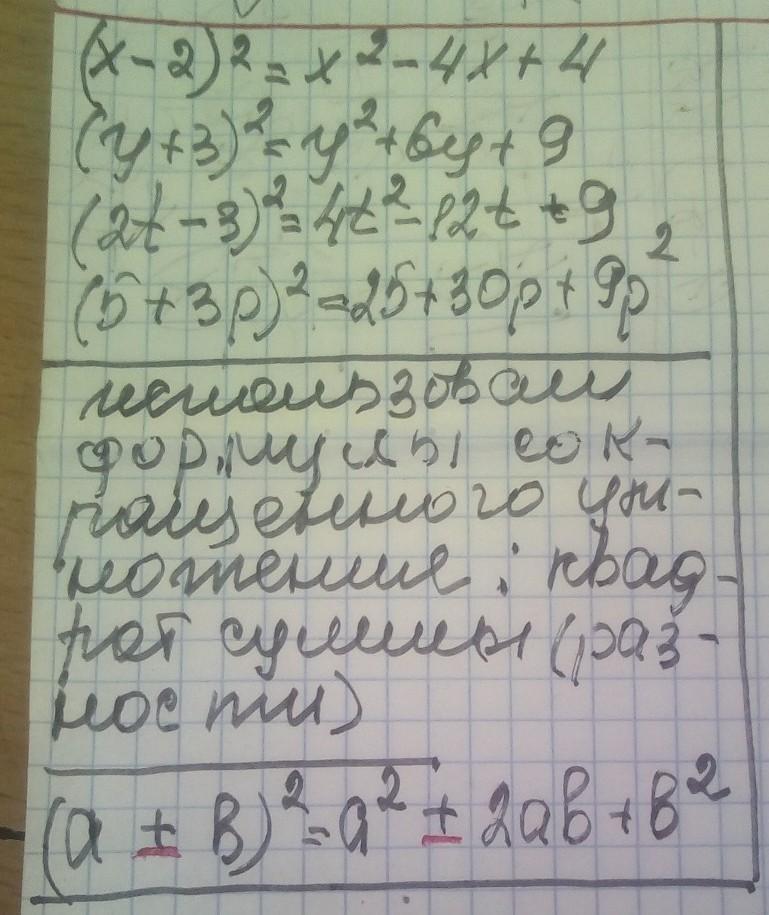 (x-2)²=x²-4x+4
(y+3)²=y²+6y+9
(2t-3)²=4t²-12t+9
(5+3p)²=25+30p+9p²
использовали
формулы сок-
ращенного ум-
ножения: квад-
рат суммы (раз-
ности)
(a ± b)²=a² ± 2ab+b²